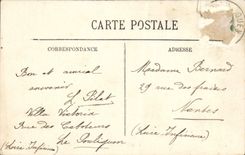 CARTE POSTALE
CORRESPONDANCE
ADRESSE
Bon et amical
souvenir
L. Pilet
Villa Victoria
Rue des Caboteurs
Le Pouliguen
(Loire Inférieure)
Madame Bernard
29 rue des
Nantes
(Loire Inférieure)